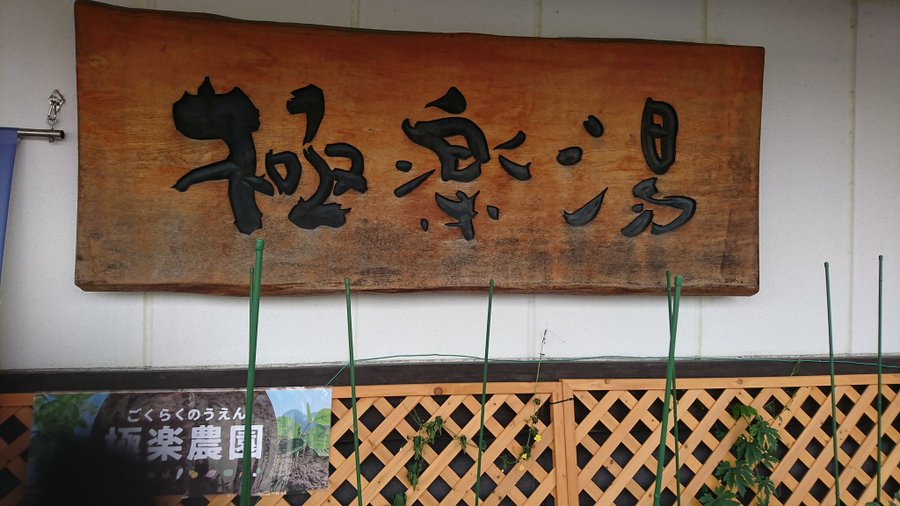 極楽湯
ごくらくのうえん
極楽農園